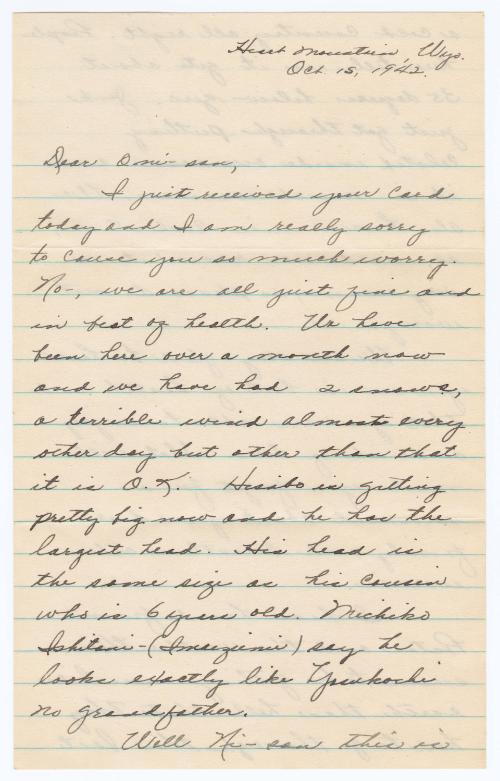 Heart Mountain, Wyo.
Oct. 15, 1942.
Dear Oni-san,
I just received your card
today and I am really sorry
to cause you so much worry.
No-, we are all just fine and
in best of health. We have
been here over a month now
and we have had 2 snows,
a terrible wind almost every
other day but other than that
it is O.K. Hisabo is getting
pretty big now and he has the
largest head. His head is
the same size as his cousin
who is 6 years old. Michiko
Ishitani-(Imaizumi) say he
looks exactly like
no grandfather.
Well Ni-san this is